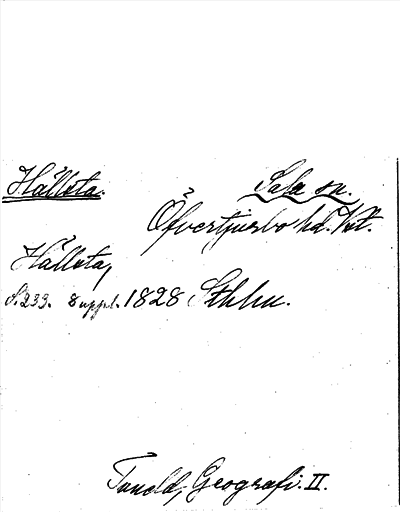 Hällsta. Sala sn.
Öfvertjurbo hd. Vtl.
Hällsta,
S. 233. 8 uppl. 1828 Sthlm.
Tuneld, Geografi. II.